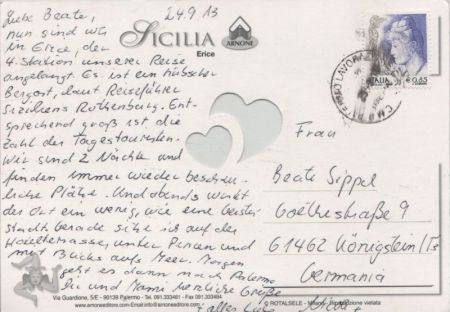 24.9.13
Liebe Beate,
nun sind wir
in Erice, der
4. Station unserer Reise
angelangt. Es ist ein hübscher
Bergort, laut Reiseführer
Siziliens Rothenburg. Ent-
sprechend groß ist die
Zahl der Tagestouristen.
Wir sind 2 Nächte und
finden immer wieder beschau-
liche Plätze. Und abends wirkt
der Ort ein wenig, wie eine Geister-
stadt. Gerade sitze ich auf der
Hotelterrasse, unter Pinien und
mit Blick aufs Meer. Morgen
geht es dann nach Palermo
Dir und Mami herzliche Grüße
+ alles Liebe
SICILIA
Erice
ARNONE
ITALIA
€ 0,85
Frau
Beate Sippel
Goethestraße 9
61462 Königstein/Ts
Germania
Via Guardione, 5/E - 90139 Palermo - Tel. 091.333461 - Fax 091.334461
www.arnoneeditore.com - Email: info@arnoneeditore.com
© ROTALSELE - Milano - Riproduzione vietata